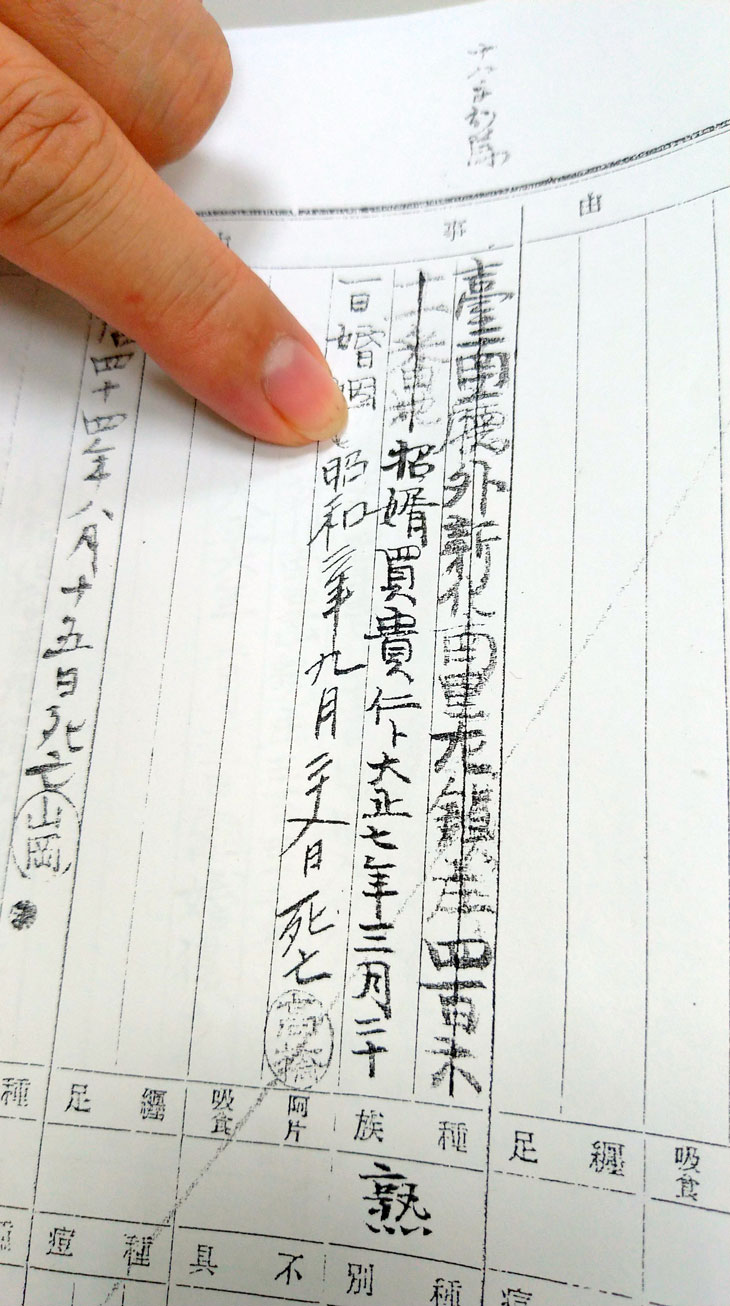 由
事
臺南廳外新化南里左鎮庄四百六
十一番地 招婿買貴仁ト大正七年三月二十
一日婚姻 昭和二年九月二十八日死亡 高橋
四十四年八月十五日死亡 山岡
吸食
纏足
種族
熟
阿片
吸食
纏足
種
種別
不具
種痘